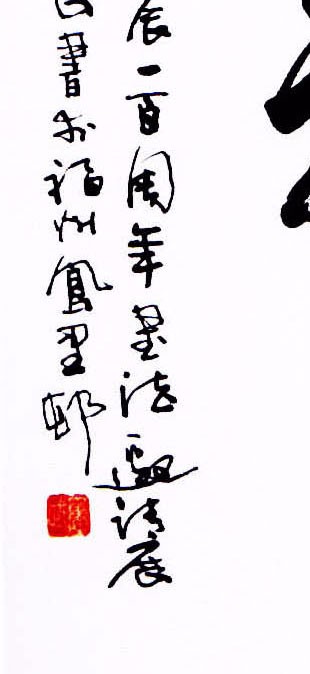 辰二百周年書法邀請展
書於福州鳳里邨